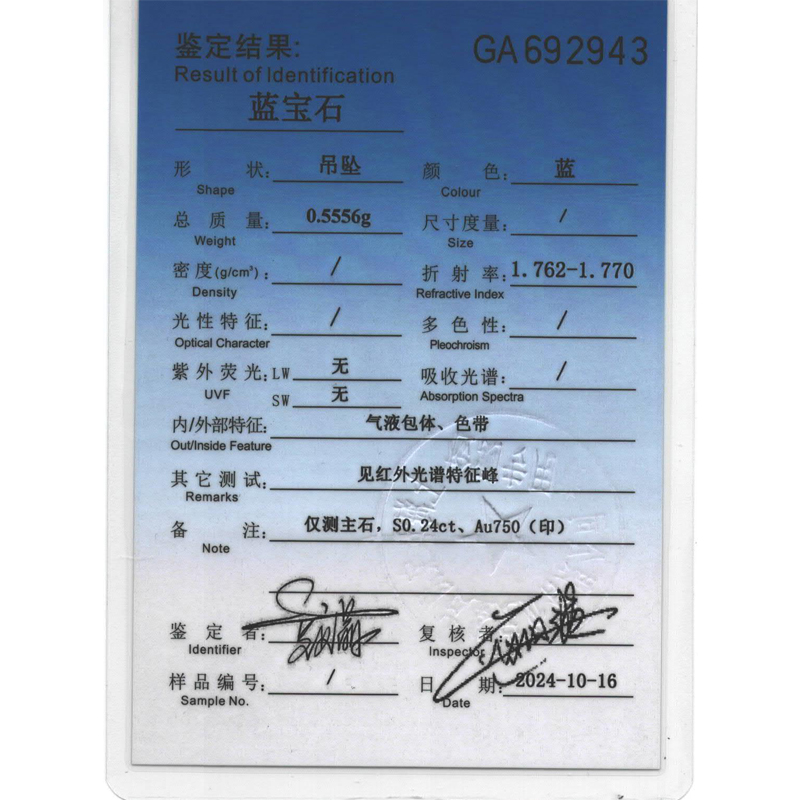 鉴定结果:
GA692943
Result of Identification
蓝宝石
形 状: 吊坠 颜 色: 蓝
Shape Colour
总 质 量: 0.5556g 尺寸度量: /
Weight Size
密 度(g/cm³): / 折 射 率: 1.762-1.770
Density Refractive Index
光性特征: / 多 色 性: /
Optical Character Pleochroism
紫外荧光: LW 无 吸收光谱: /
UVF SW 无 Absorption Spectra
内/外部特征: 气液包体、色带
Out/Inside Feature
其它测试: 见红外光谱特征峰
Remarks
备 注: 仅测主石，S0.24ct、Au750（印）
Note
鉴 定 者: 复 核 者:
Identifier Inspector
样品编号: / 日 期: 2024-10-16
Sample No. Date